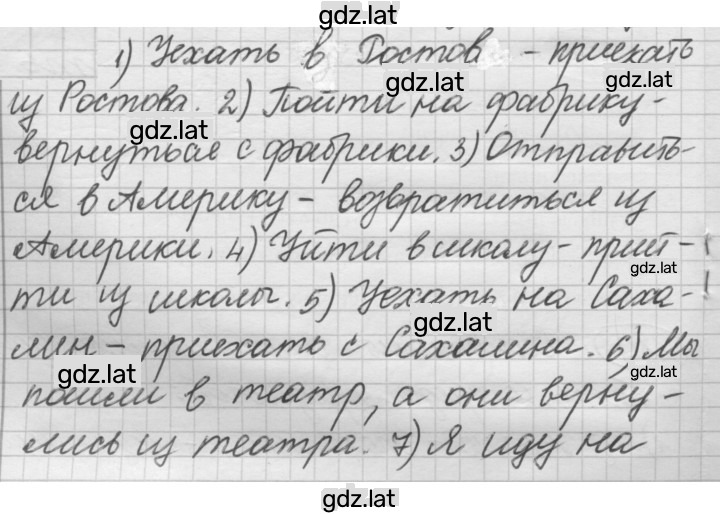 gdz.lat
1) Уехать в Ростов - приехать
gdz.lat gdz.lat
из Ростова. 2) Пойти на фабрику -
gdz.lat
вернуться с фабрики. 3) Отправить-
gdz.lat
ся в Америку - возвратиться из
Америки. 4) Уйти в школу - прий-
gdz.lat
ти из школы. 5) Уехать на Саха-
gdz.lat
лин - приехать с Сахалина. 6) Мы
gdz.lat gdz.lat
пошли в театр, а они верну-
лись из театра. 7) Я иду на
gdz.lat